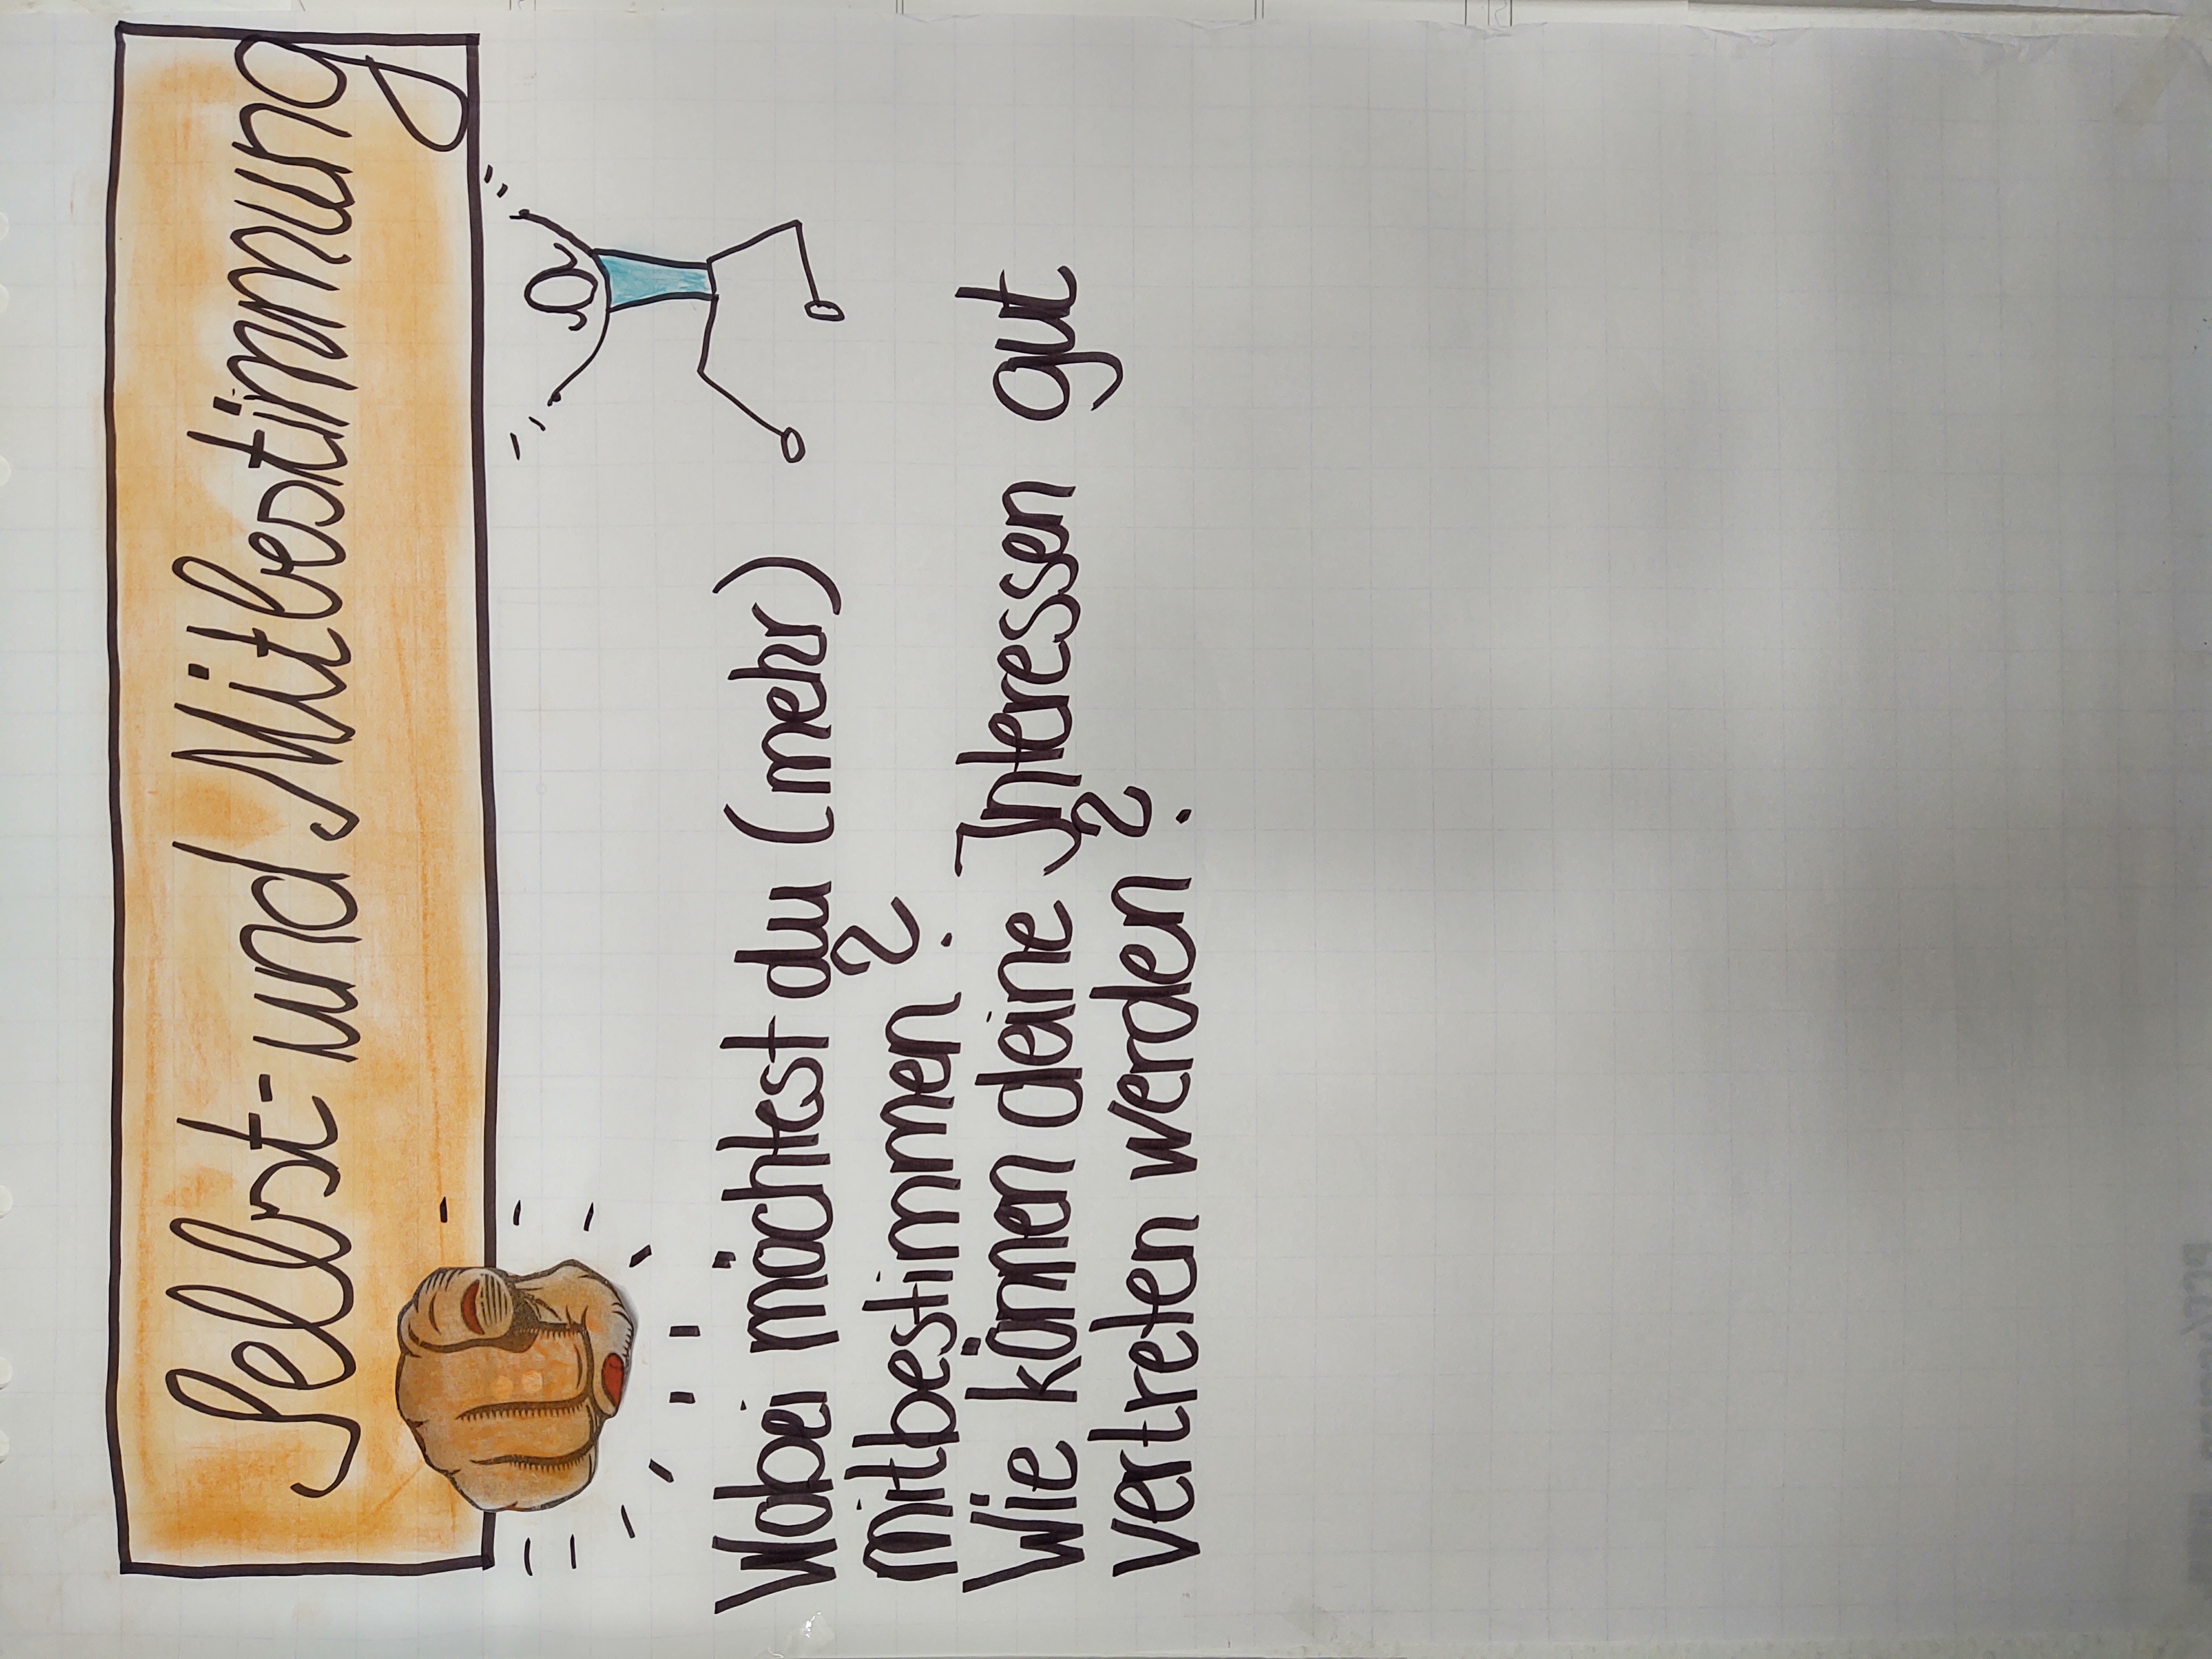 Selbst- und Mitbestimmung
Wobei möchtest du (mehr)
mitbestimmen?
Wie können deine Interessen gut
vertreten werden?